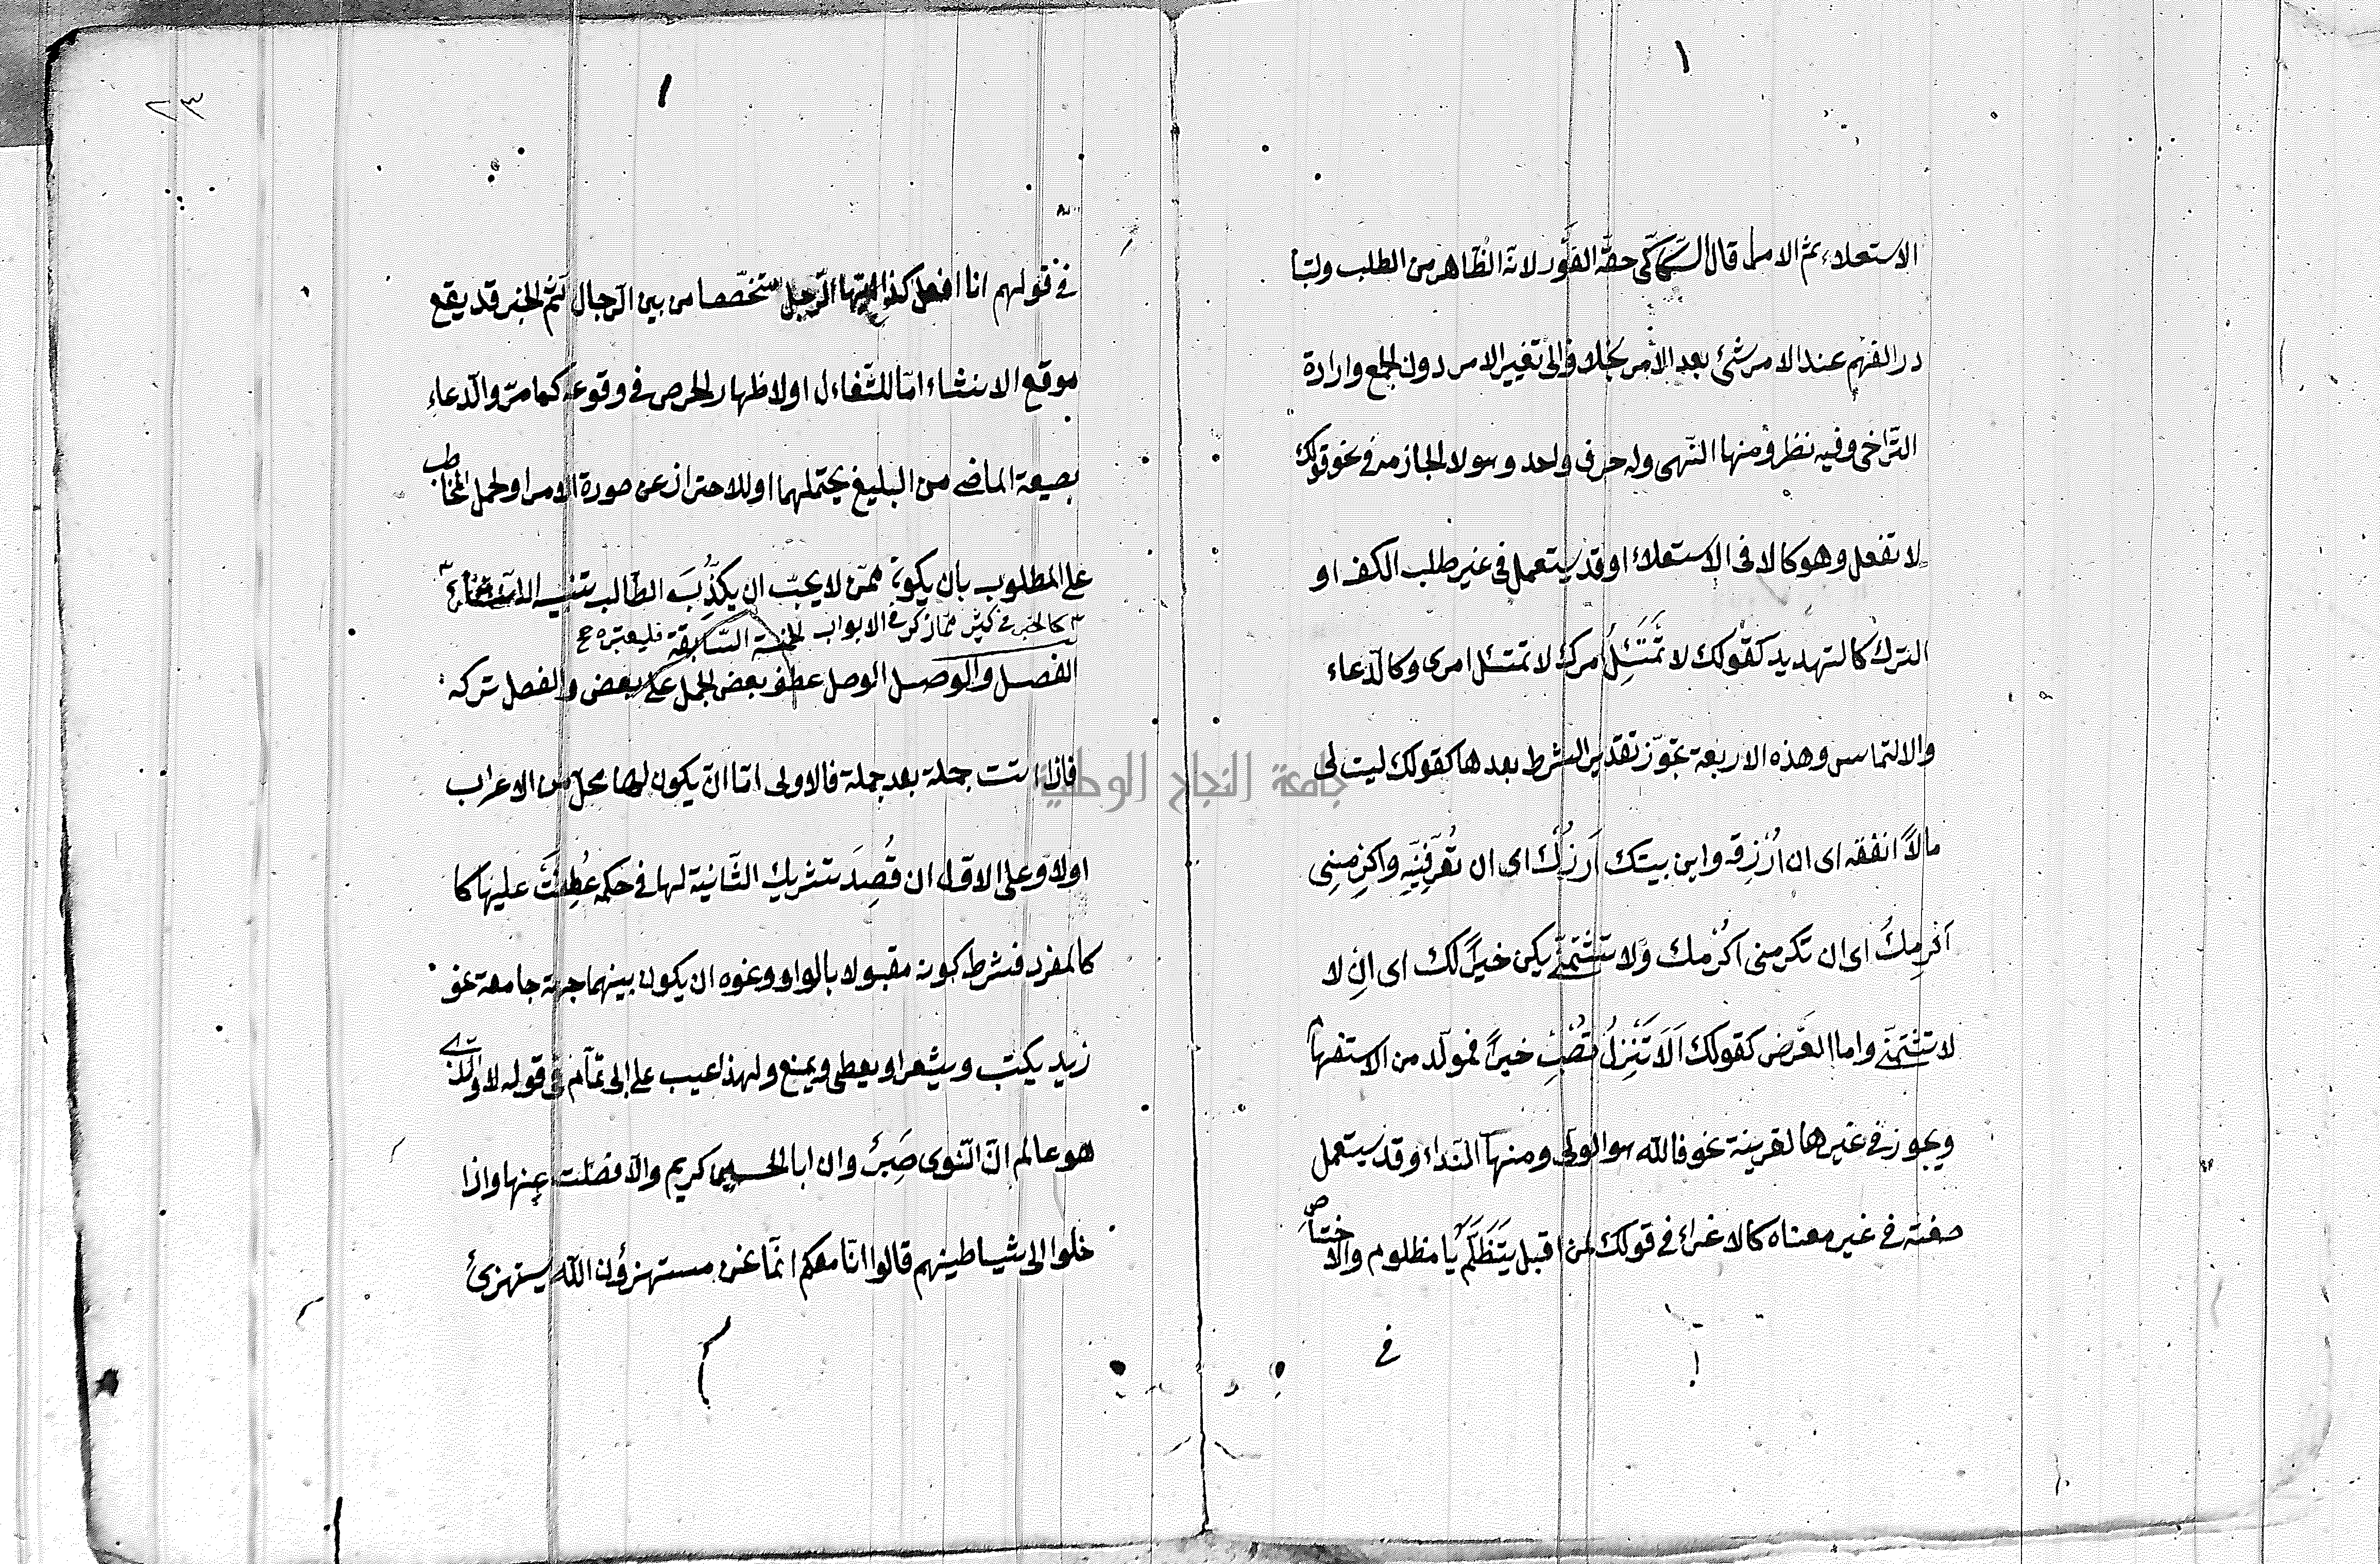 ١
الاستعلاء ثم الامر قال السّكّاكّى حقّه الفَوْر لانّه الظّاهر من الطلب ولتبا
در الفهم عند الامر شئ بعد الأمر بخلافه الى تغيير الامر دون الجمع وارادة
التّراخى وفيه نظر ومنها النّهى وله حرف واحد وهو لا الجازمه فى نحو قولك
لا تفعل وهو كالا فى الاستعلاء وقد يستعمل فى غير طلب الكف او
الترك كالتهديد كقولك لا تَمْتَثِلُ امرك لا تمتثل امرى وكالدّعاء
والالتماس وهذه الاربعة تجوّز تقدير الشرط بعدها كقولك ليت لى
مالاً انفقه اى ان اُرْزقه واين بيتك اَزرْك اى ان تُعَرِّفنِيِه واكرِمِنِى
اكرِمكُ اى ان تكرمنى اكرُمك وَلا تشتمنّے يكن خيراً لك اى انِ لا
لا تشتمنّے واما العَرض كقولك اَلَا تَنْزِلُ تُصِبْ خيراً فمولّد من الاستفهام
ويجوز فى غيرها لقرينة نحو فالله هو الولى ومنها النّداء وقد يستعمل
صغته فى غير معناه كالاغراء فى قولك لمن اقبل يَتَظَلَّم يا مظلوم والاختصاص
فى
٢٣
١
فى قولهم انا افعل كذا ايّها الرّجل متخصّصا من بين الرّجال ثمّ الخبر قد يقع
موقع الانشاء امّا للتّفاءل او لاظهار الحرص فى وقوعه كما مرّ والدّعاء
بصيغة الماضے من البليغ يحتملهما او للاحتراز عن صورة الامر او لحمل المخاطب
على المطلوب بان يكون ممّن لا يحبّ ان يكذِّبَ الطّالب تنبيه الانشاء
كالخبر فى كثير ممّا ذكر فى الابواب الخمسة السّابقة فليعتبره صح
الفصل والوصل الوصل عطف بعض الجمل على بعض والفصل تركه
فاذا اتت جملة بعد جملة فالاولى امّا انّ يكون لها محلّ من الاعراب
اولا وعلى الاوّل ان قُصِدَ تشريك الثّانية لها فى حكمه عُطِفَتْ عليها كا
كالمفرد فشرط كونه مقبولا بالواو ونحوه ان يكون بينهما جهة جامعة نحو
زيد يكتب ويشعر او يعطى ويمنع ولهذا عيب على ابى تمّام فى قوله لا والّذے
هو عالم انّ النّوى صَبِرُ وان ابا الحسين كريم والّا فصّلت عنها واذا
خلوا الى شياطينهم قالوا انّا معكم انّما نحن مستهزؤن الله يستهزئ
جامعة النجاح الوطنية